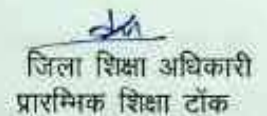 जिला शिक्षा अधिकारी
प्रारम्भिक शिक्षा टोंक